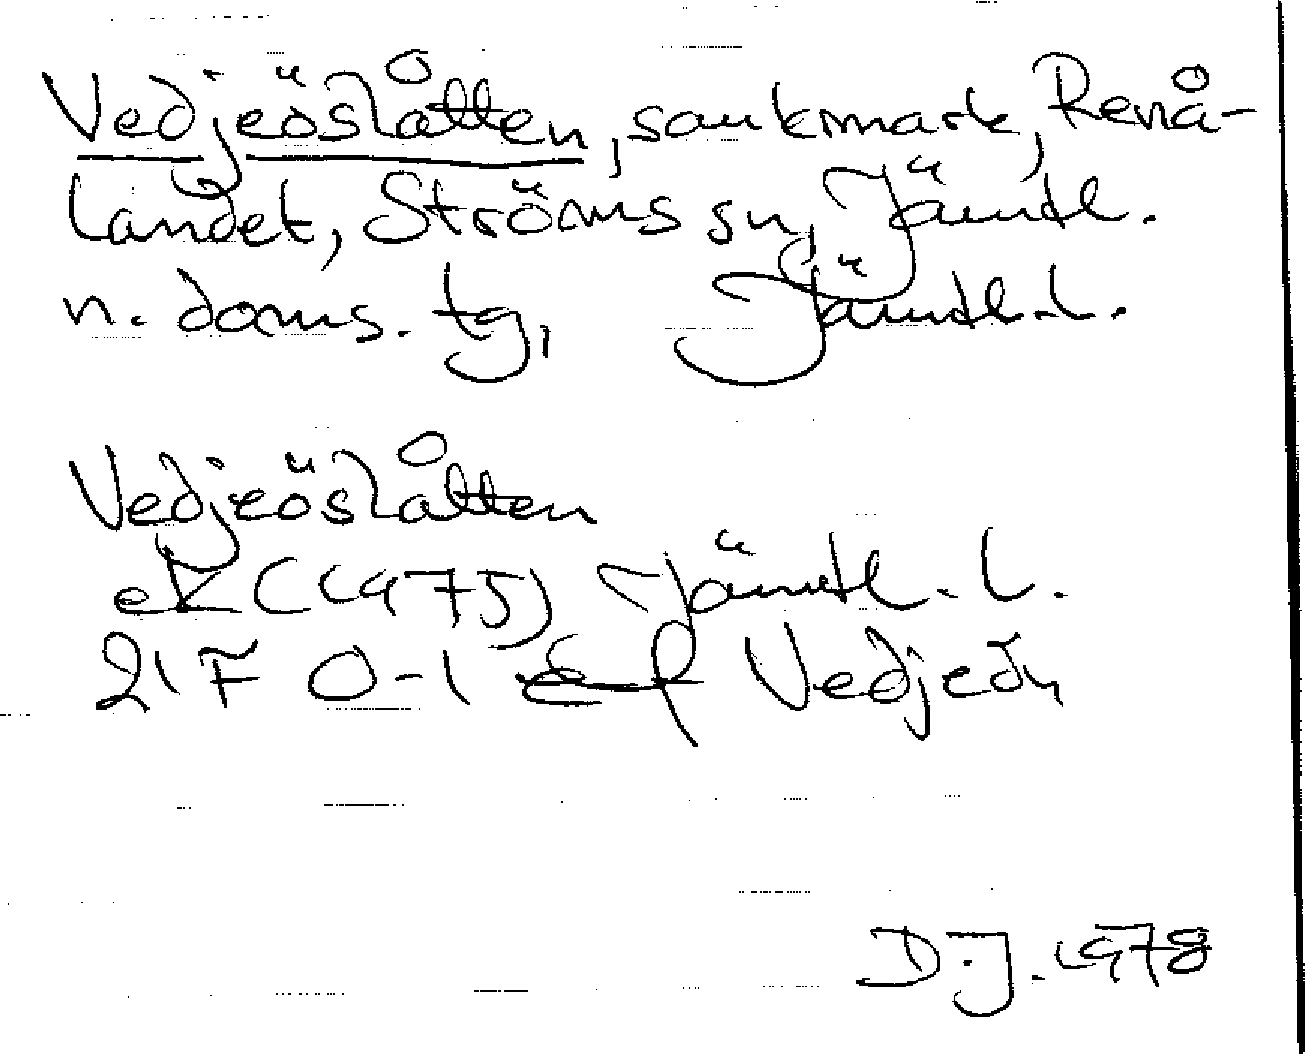 Vedjeöslåtten, sankmark, Renå-
landet, Ströms sn, Jämtl.
n. doms. tg, Jämtl. l.
Vedjeöslåtten
eK (1975) Jämtl. l.
21 F 0-1 Vedjeön
D.J. 1978